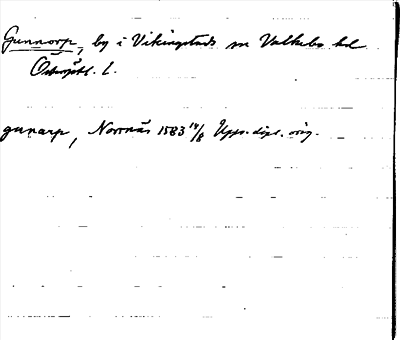 Gunnorp, by i Vikingstads sn Valkebo hd
Östergötl. l.
gunarp, Norrnäs 1583 14/8 Upps. dipl. orig.